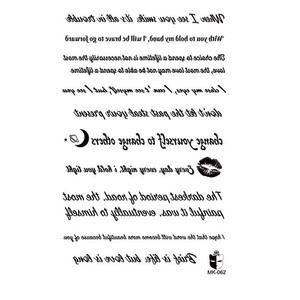 When I see you smile, it's all in trouble.
With you to hold my hand, I will be brave to go forward
The choice to spend a lifetime is not necessarily the most
love, the most love may not be able to spend a lifetime
my eyes, I can't see myself, but I can see
don't let the past steal your present
change yourself to change others
Every day, every night, i hold you tight
The darkest period of road, the most
painful it was, eventually to himself
I hope that the become more beautiful because of you
Brief is life, but love is long
MK-062